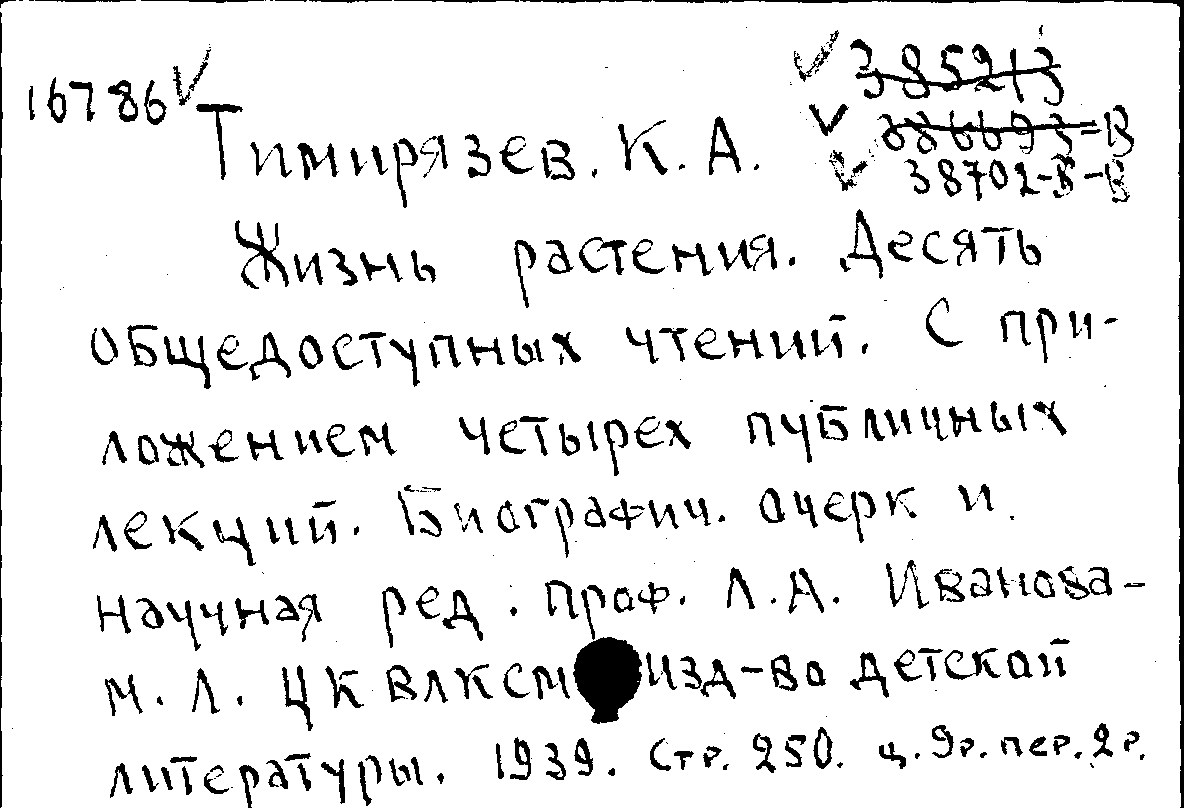 16786
385213
386693-В
38702-Б-В
Тимирязев. К. А.
Жизнь растения. Десять
общедоступных чтений. С при-
ложением четырех публичных
лекций. Биографич. очерк и
научная ред. проф. Л. А. Иванова-
М. Л. ЦК ВЛКСМ изд-во детской
литературы. 1939. Стр. 250. ц. 9р. пер. 2р.